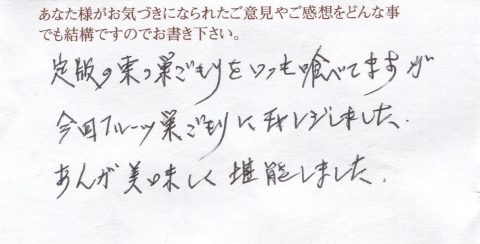 あなた様がお気づきになられたご意見やご感想をどんな事
でも結構ですのでお書き下さい。
定版の栗の巣ごもりをいつも喰べてますが
今回フルーツ巣ごもりにチャレンジしました、
あんが美味しく堪能しました.